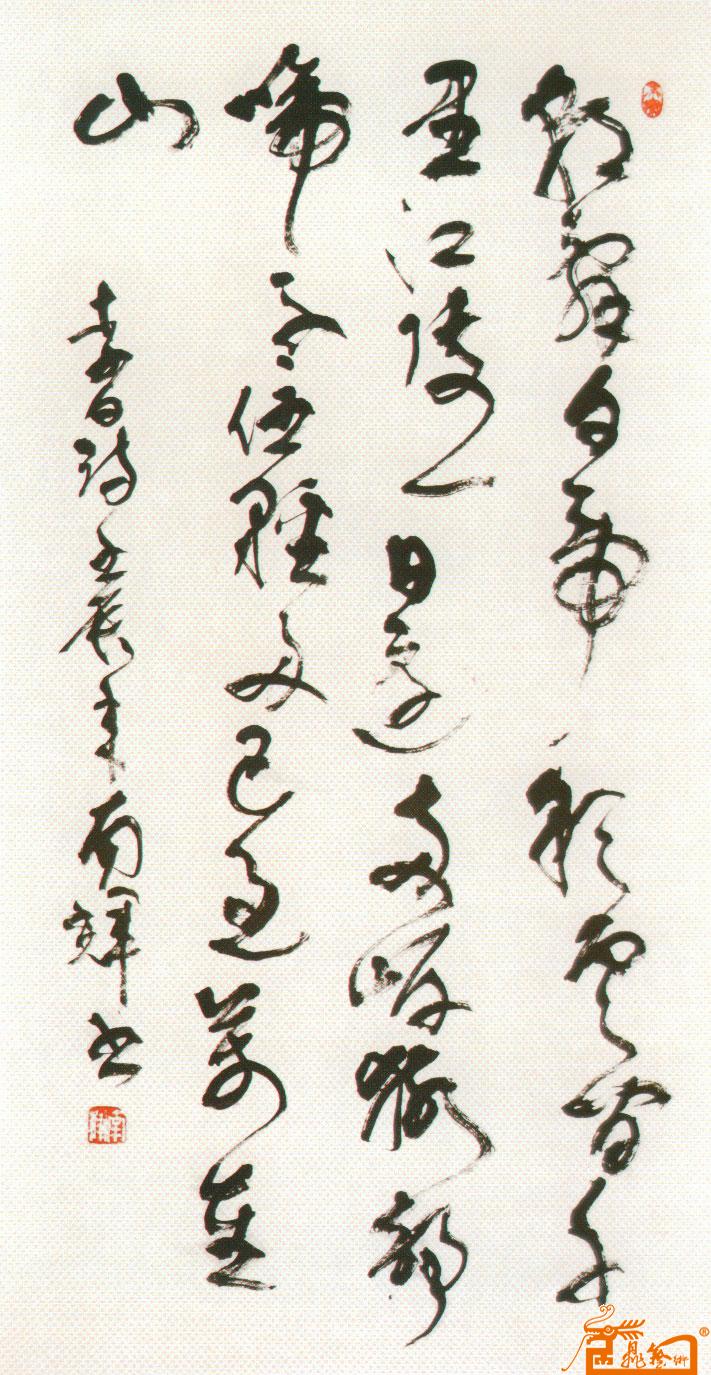 朝辭白帝彩雲間千
里江陵一日還兩岸猿聲
啼不住輕舟已過萬重
山
李白詩壬辰年南輝书
鼎藝術®